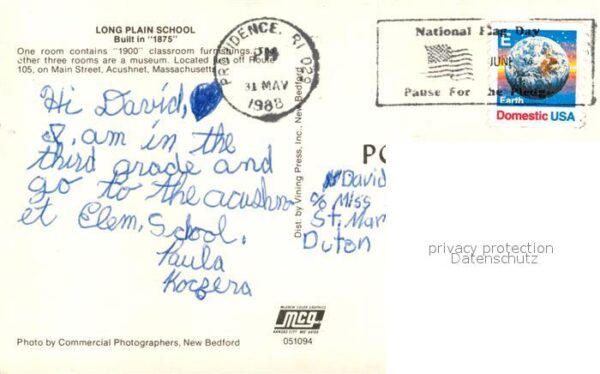 LONG PLAIN SCHOOL
Built in "1875"
One room contains "1900" classroom furnishings. The
other three rooms are a museum. Located just off Route
105, on Main Street, Acushnet, Massachusetts
PROVIDENCE, RI 029
PM
31 MAY
1988
National Flag Day
JUNE 14
Pause For the Pledge
E
Earth
Domestic USA
Hi David,
I am in the
third grade and
go to the acushn
et Elem, School.
Paula
Koczera
Dist. by Vining Press, Inc., New Bedford
PO
David
c/o Miss
St. Mar
Duton
privacy protection
Datenschutz
McGREW COLOR GRAPHICS
mcg
KANSAS CITY, MO. 64108
051094
Photo by Commercial Photographers, New Bedford